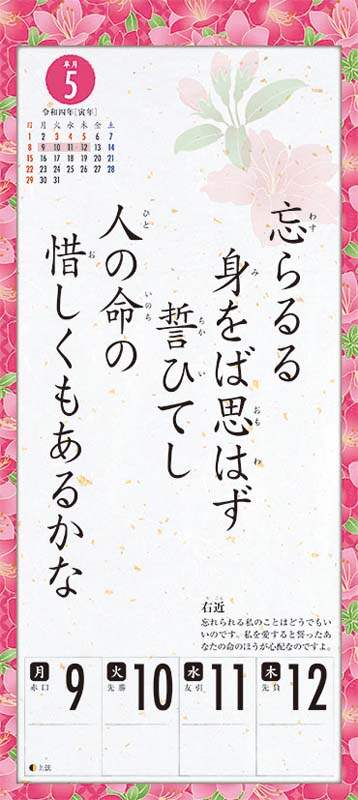 皐月
5
令和四年[寅年]
日 月 火 水 木 金 土
1 2 3 4 5 6 7
8 9 10 11 12 13 14
15 16 17 18 19 20 21
22 23 24 25 26 27 28
29 30 31
忘らるる
わす
身をば思はず
み おも わ
誓ひてし
ちか い
人の命の
ひと いのち
惜しくもあるかな
お
右近
うこん
忘れられる私のことはどうでもい
いのです。私を愛すると誓ったあ
なたの命のほうが心配なのですよ。
月 9 赤口
火 10 先勝
水 11 友引
木 12 先負
上弦